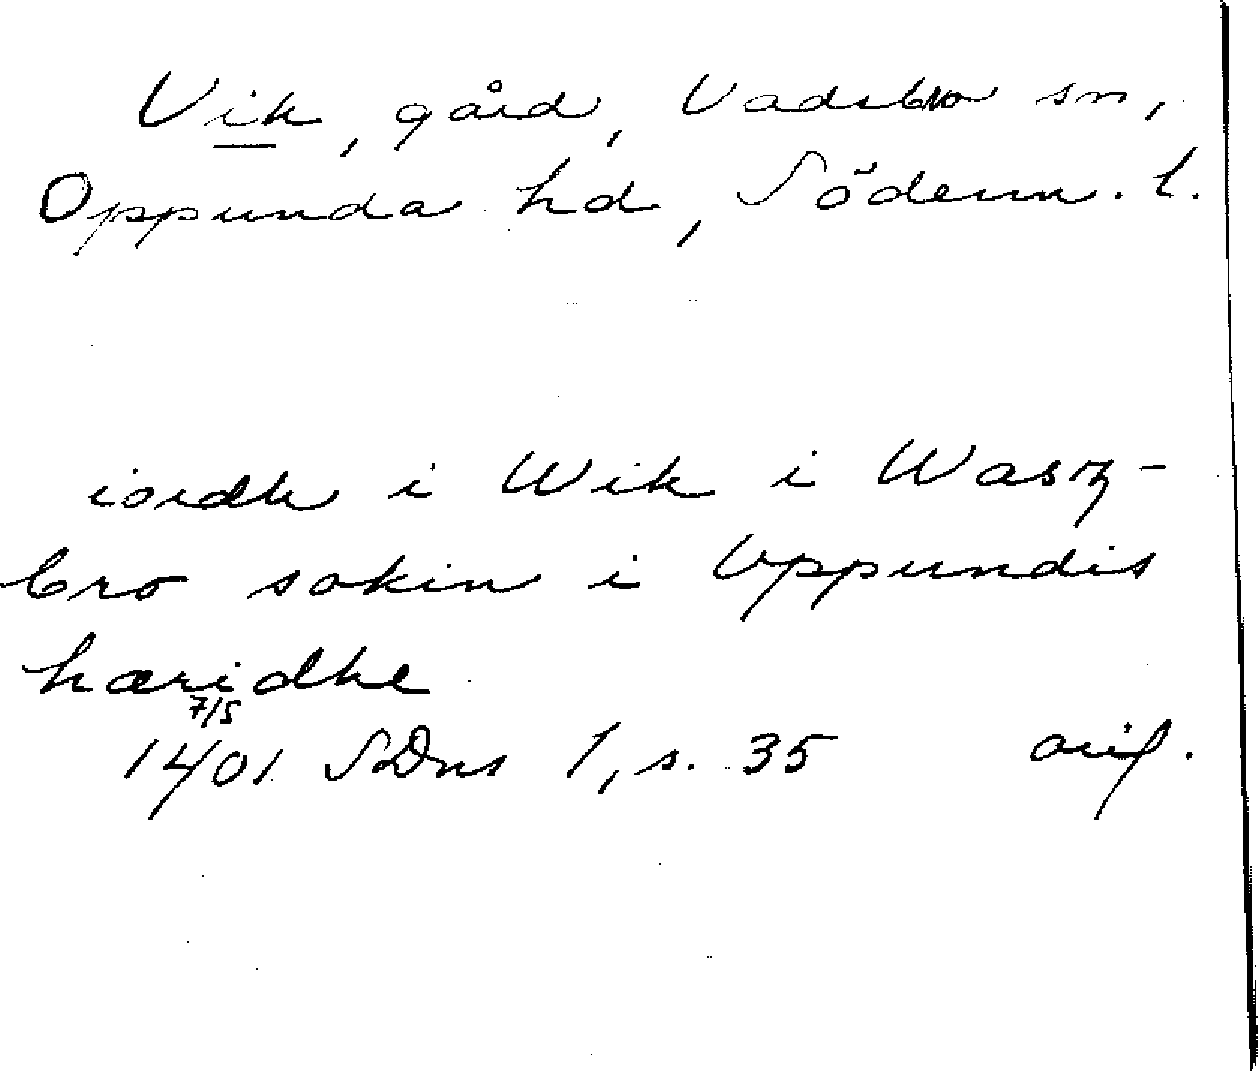 Vik, gård, Vadsbro sn,
Oppunda hd, Söderm. l.
iordh i Wik i Wasz-
bro sokin i Vppundis
hæridhe
7/5
1401 SDns 1, s. 35 orig.